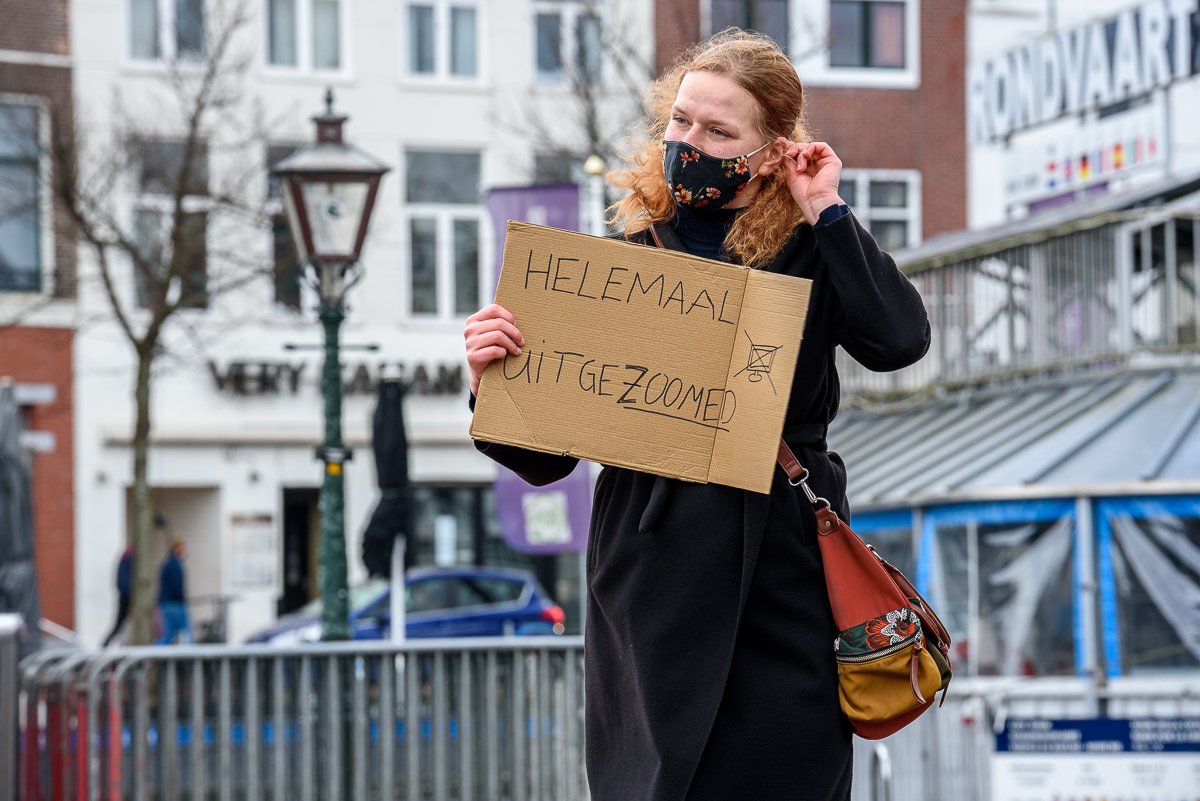 RONDVAART
VERY ITALIAN
HELEMAAL
UITGEZOOMED